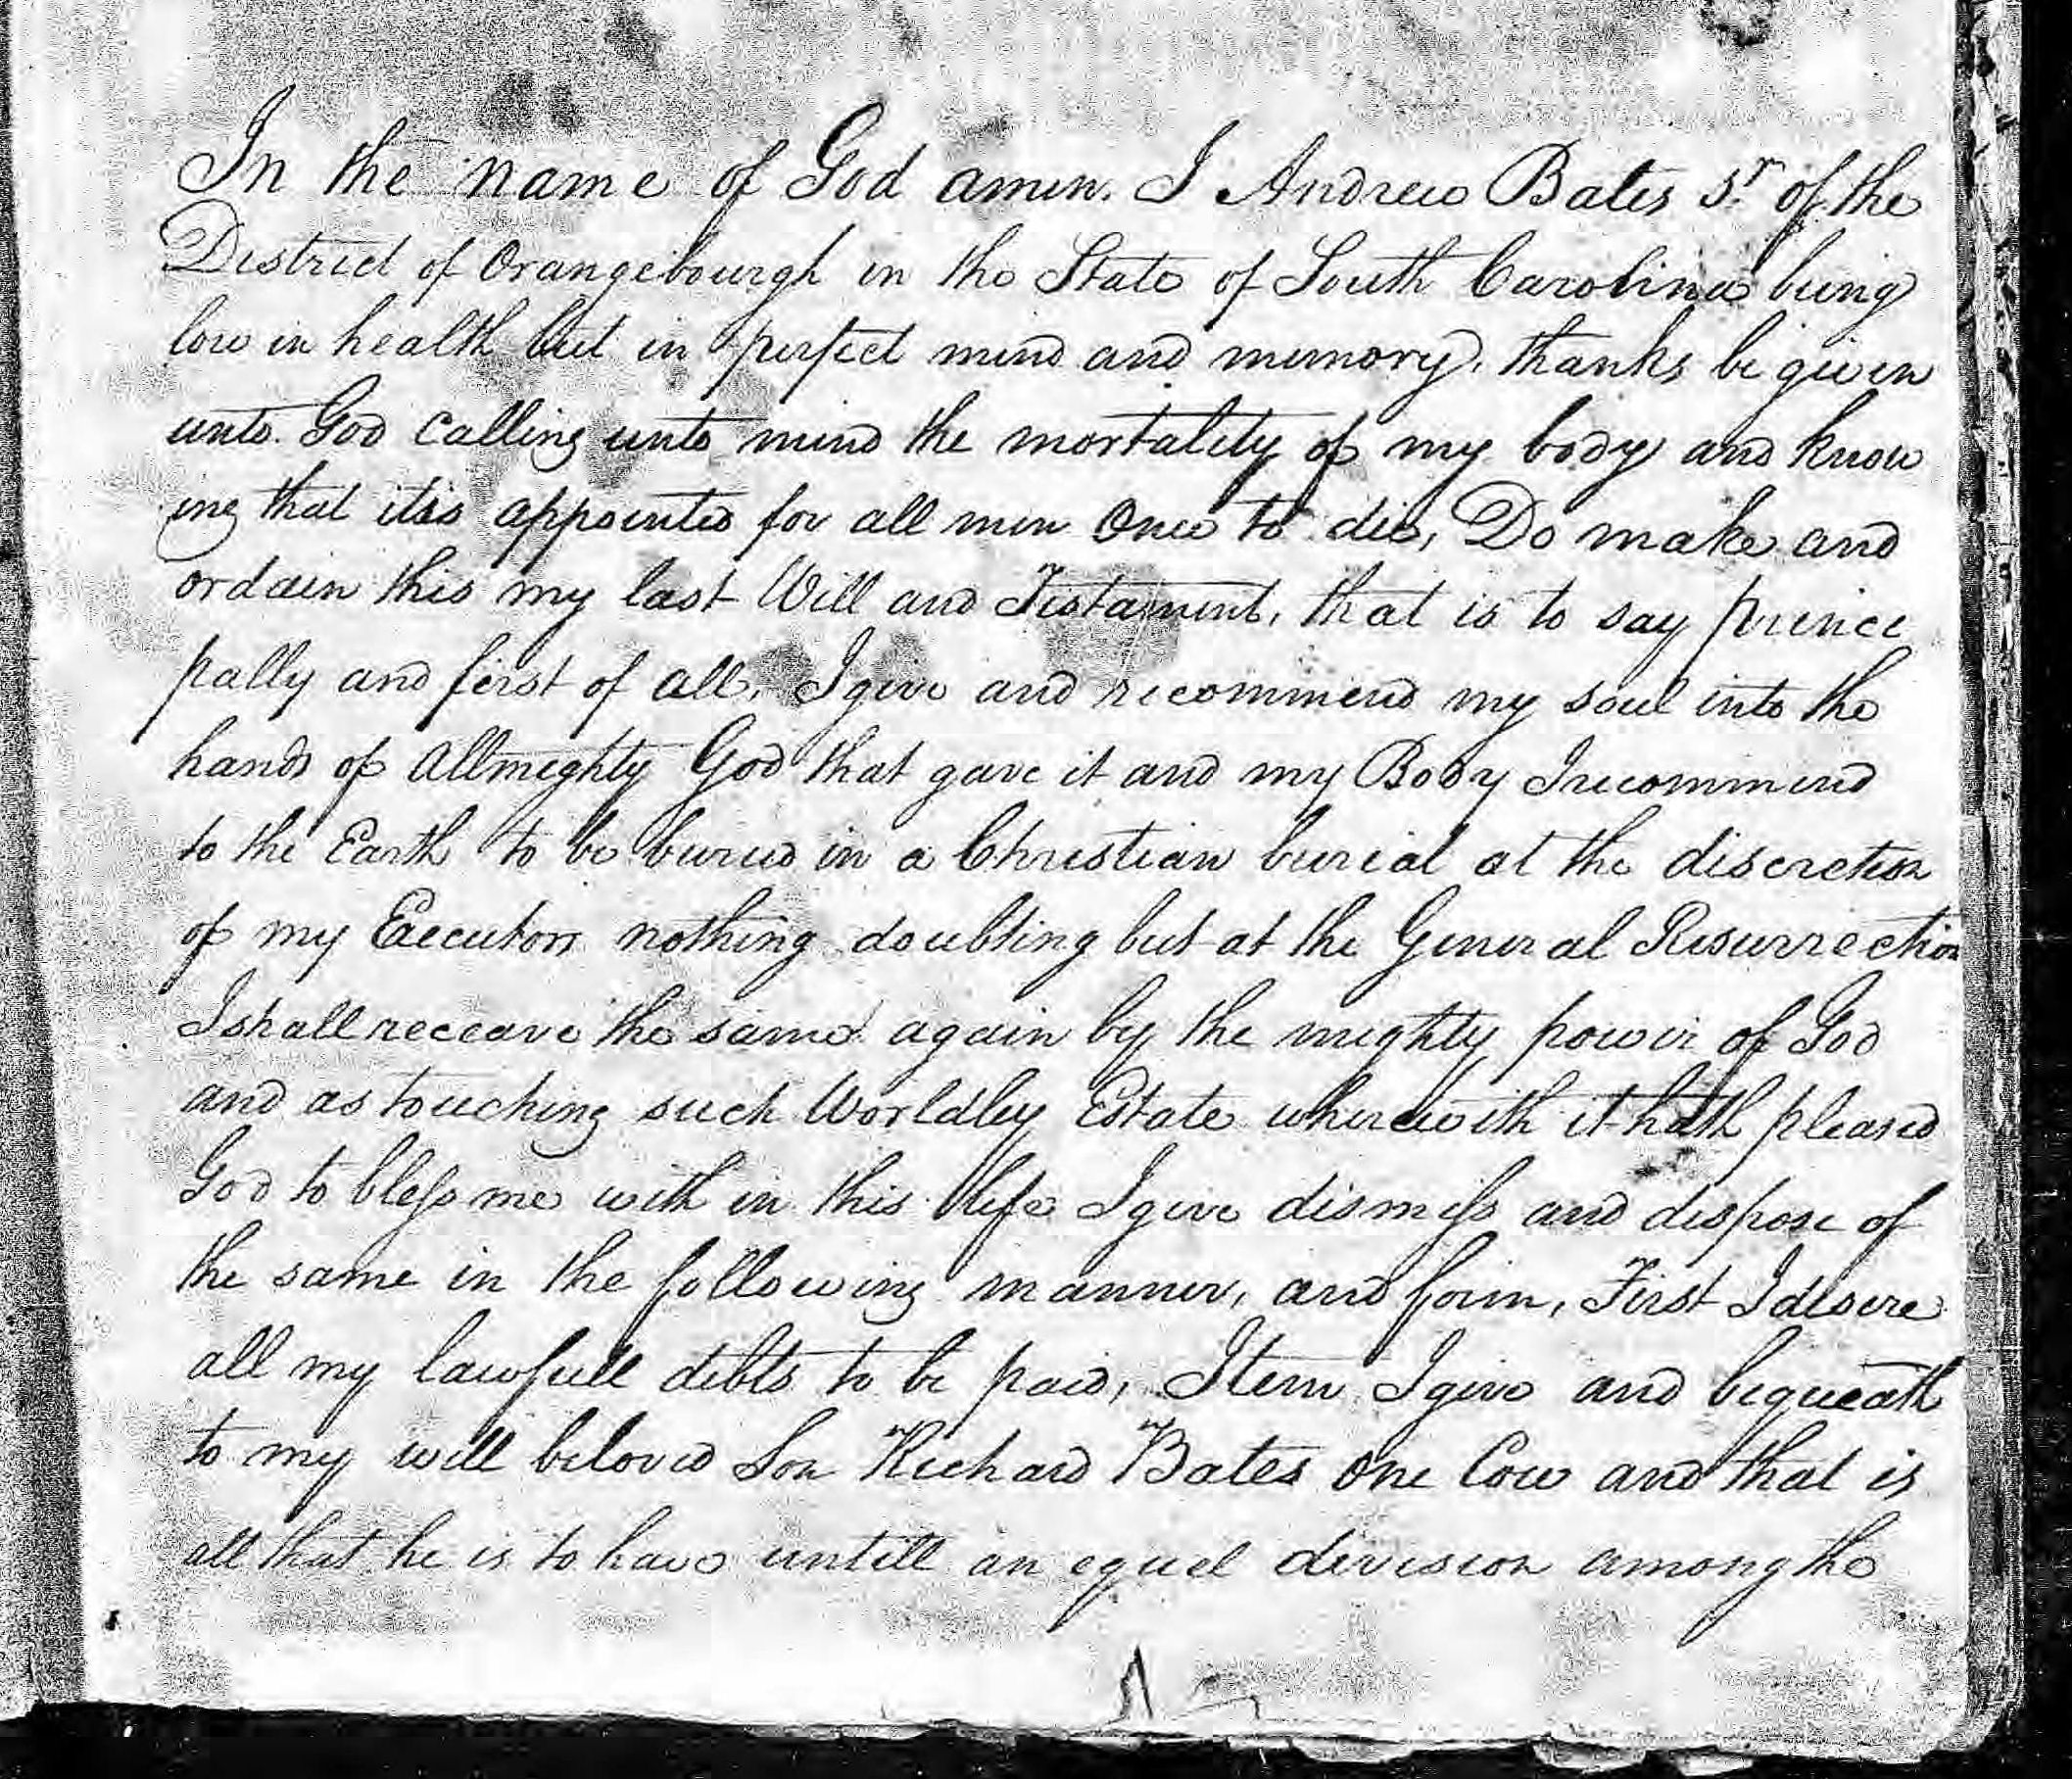 In the name of God amen. I Andrew Bates Sr. of the
District of Orangebourgh in the State of South Carolina being
low in health but in perfect mind and memory, thanks be given
unto God Calling unto mind the mortality of my body and know
ing that itis appointed for all men Once to die, Do make and
ordain this my last Will and Testament, that is to say princi
pally and first of all, I give and recommend my soul into the
hands of Allmighty God that gave it and my Body I recommend
to the Earth to be buried in a Christian burial at the discretion
of my Executors nothing doubting but at the General Resurrection
I shall receave the same again by the mighty power of God
and as touching such Worldley Estate wherewith it hath pleased
God to bless me with in this life I give dismiss and dispose of
the same in the following manner, and form, First I desire
all my lawfull debts to be paid, Item I give and bequeath
to my well beloved Son Richard Bates One Cow and that is
all that he is to have untill an equel division among the